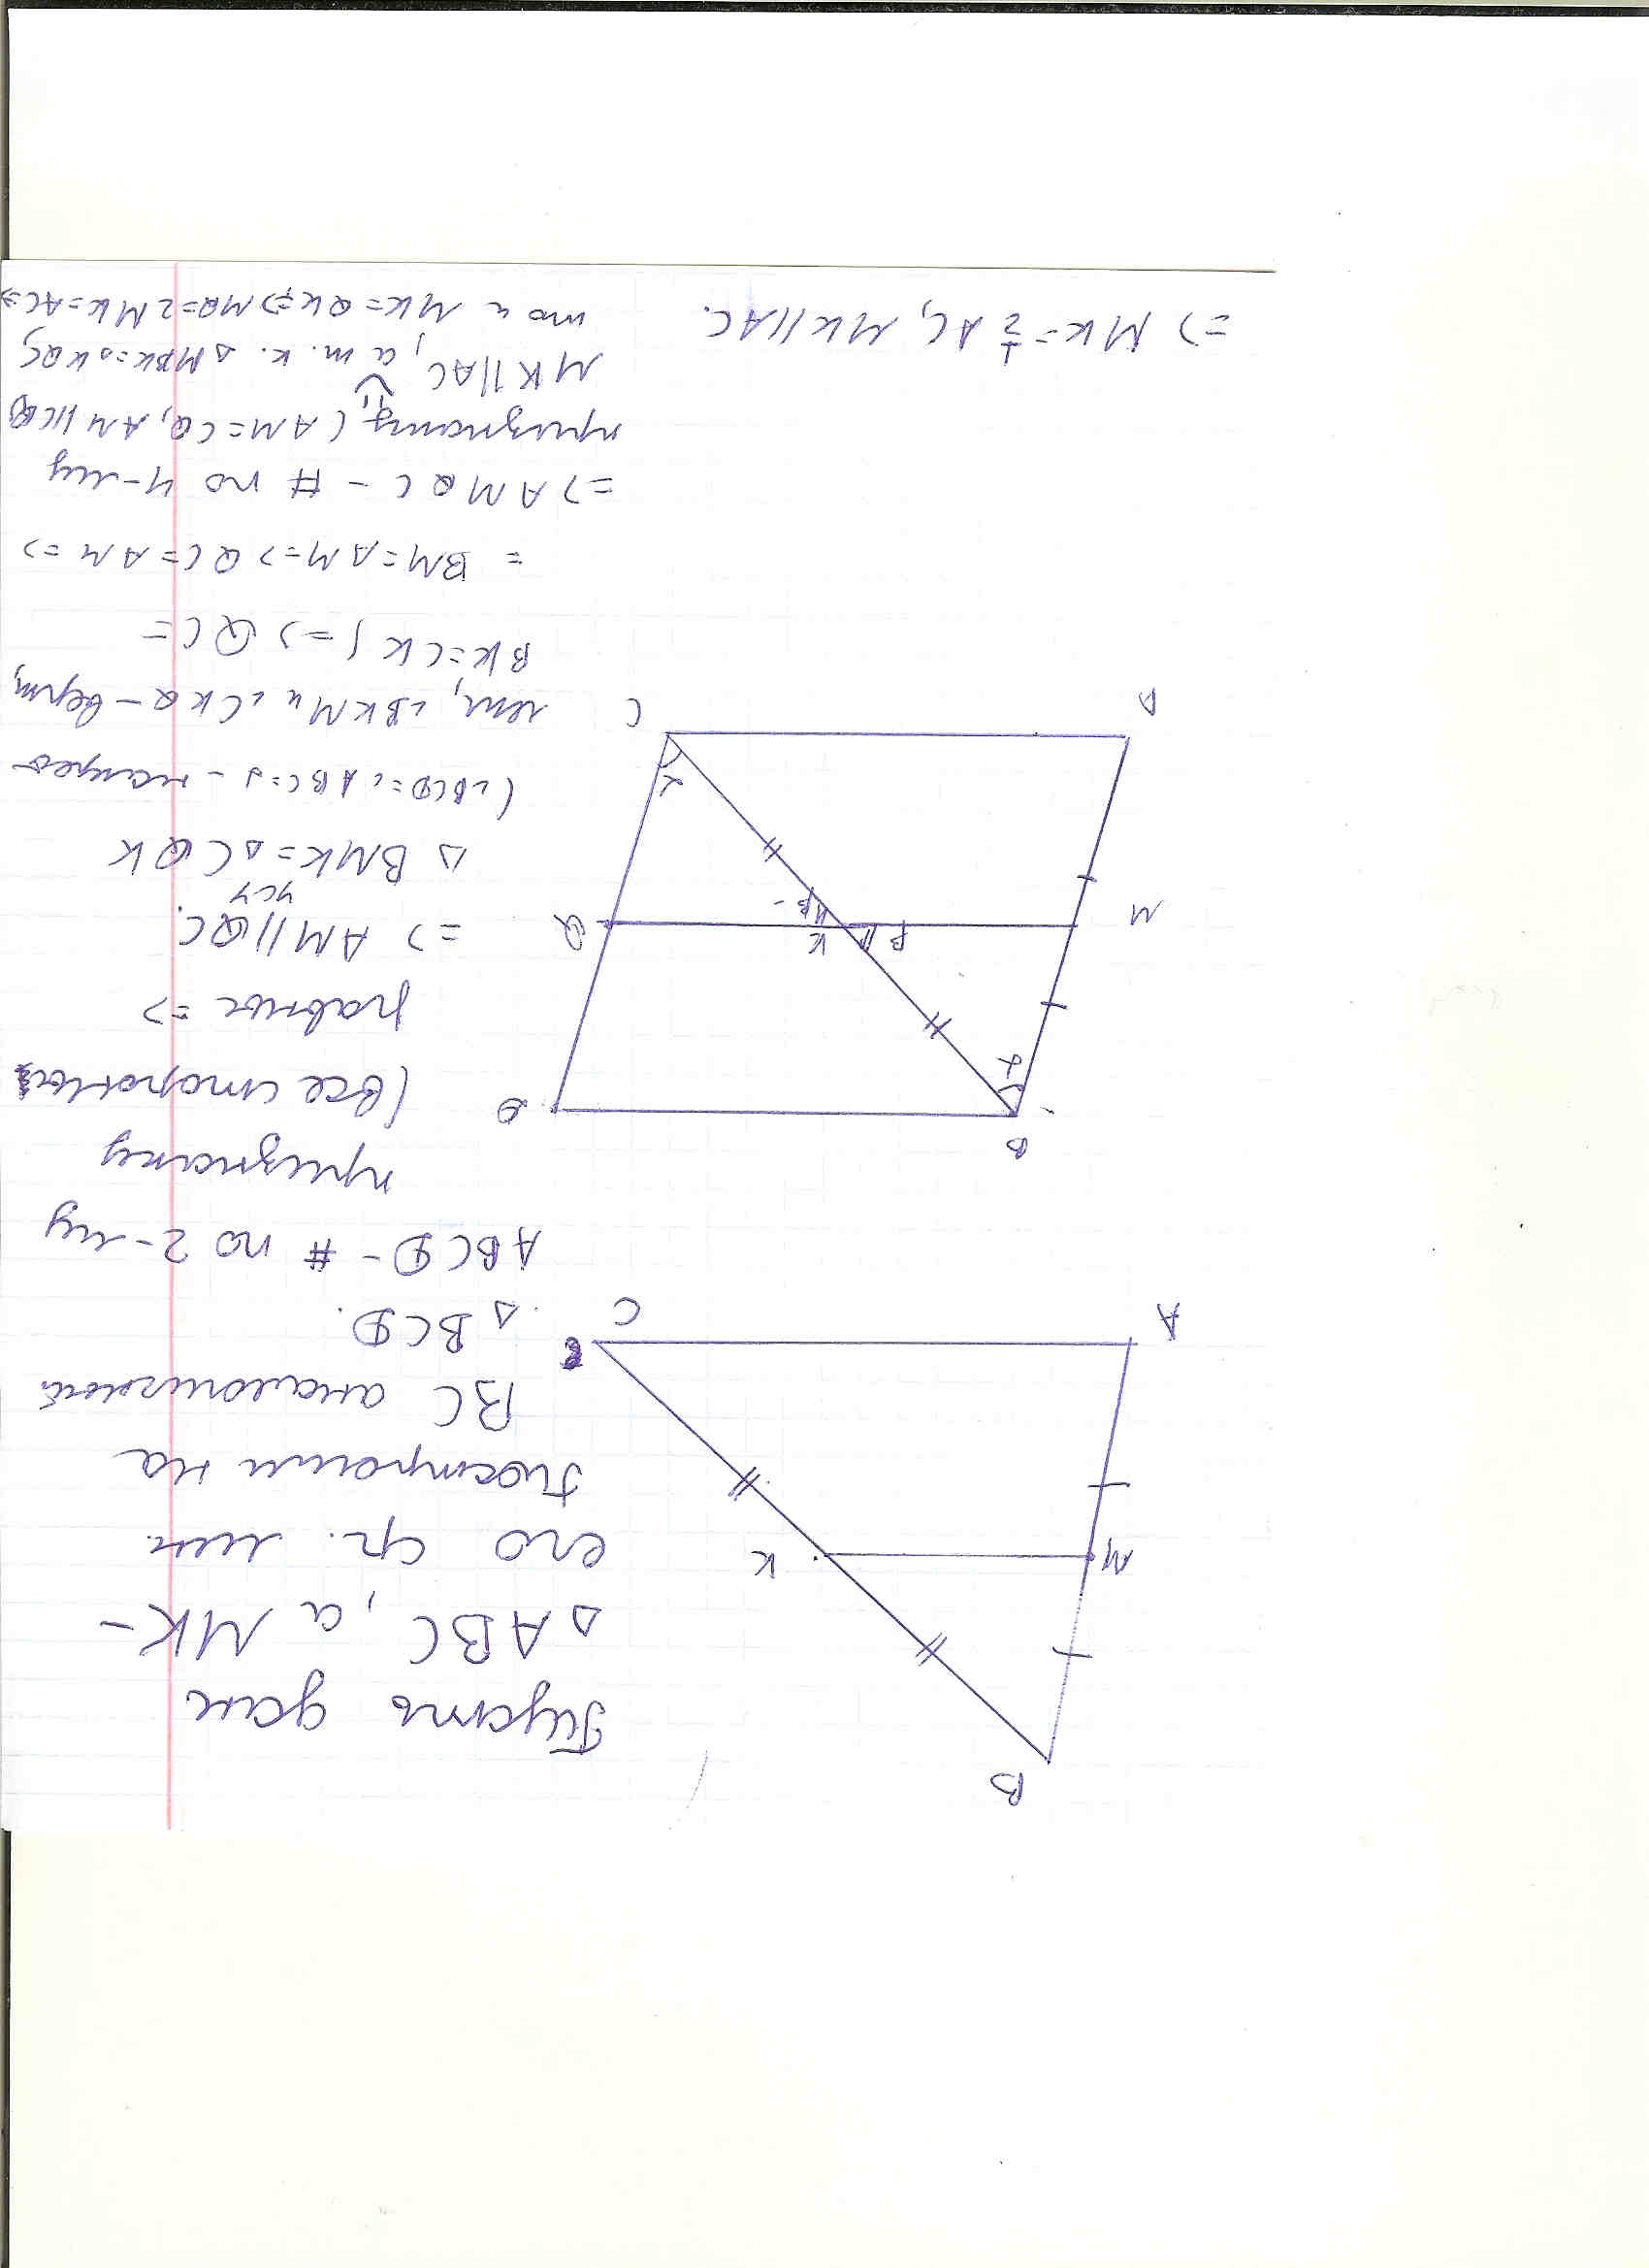 B
M
K
A
C
Пусть дан
△ABC, а MK-
его ср. лин.
Построим на
BC аналогичный
△BCD.
ABCD - # по 2-му
признаку
(все стороны
равны =>
=> AM||QC.
усу
△BMK=△CQK
(∠BCD=∠ABC=α - накрест
леж, ∠BKM и ∠CKQ - верт,
BK=CK) => QC=
=BM=AM=>QC=AM=>
=>AMQC - # по 4-му
признаку (AM=CQ, AM||CQ)
MK||AC, а т.к. △MBK=△KQC
то и MK=QK=>MQ=2MK=AC=>
B
D
α
M
β
K
β
Q
α
A
C
=> MK=½AC, MK||AC.